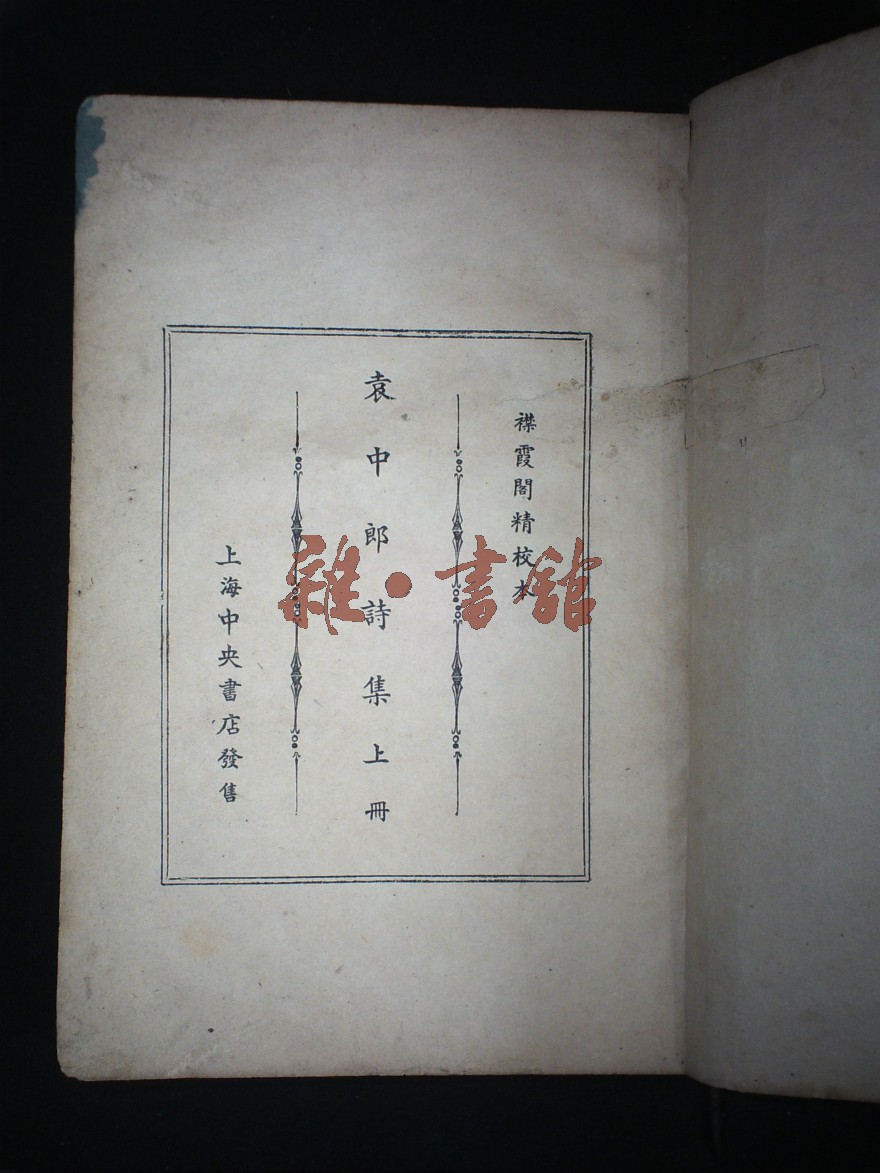 襟霞閣精校本
袁中郎詩集上冊
上海中央書店發售
雜·書館